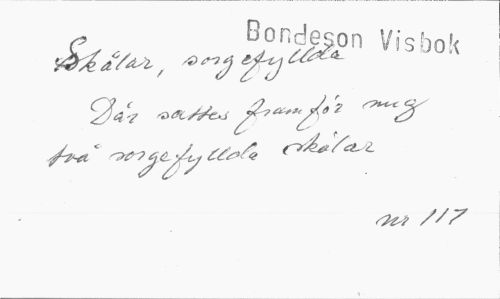 Bondeson Visbok
Skålar, sorgefyllda
Där sattes framför mig
två sorgefyllda skålar
nr 117